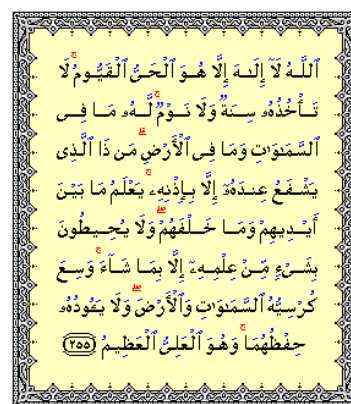 ٱللَّهُ لَآ إِلَـٰهَ إِلَّا هُوَ ٱلْحَىُّ ٱلْقَيُّومُ ۚ لَا
تَأْخُذُهُۥ سِنَةٌ وَلَا نَوْمٌ ۚ لَّهُۥ مَا فِى
ٱلسَّمَـٰوَٰتِ وَمَا فِى ٱلْأَرْضِ ۗ مَن ذَا ٱلَّذِى
يَشْفَعُ عِندَهُۥٓ إِلَّا بِإِذْنِهِۦ ۚ يَعْلَمُ مَا بَيْنَ
أَيْدِيهِمْ وَمَا خَلْفَهُمْ ۖ وَلَا يُحِيطُونَ
بِشَىْءٍ مِّنْ عِلْمِهِۦٓ إِلَّا بِمَا شَآءَ ۚ وَسِعَ
كُرْسِيُّهُ ٱلسَّمَـٰوَٰتِ وَٱلْأَرْضَ ۖ وَلَا يَـُٔودُهُۥ
حِفْظُهُمَا ۚ وَهُوَ ٱلْعَلِىُّ ٱلْعَظِيمُ ﴿٢٥٥﴾